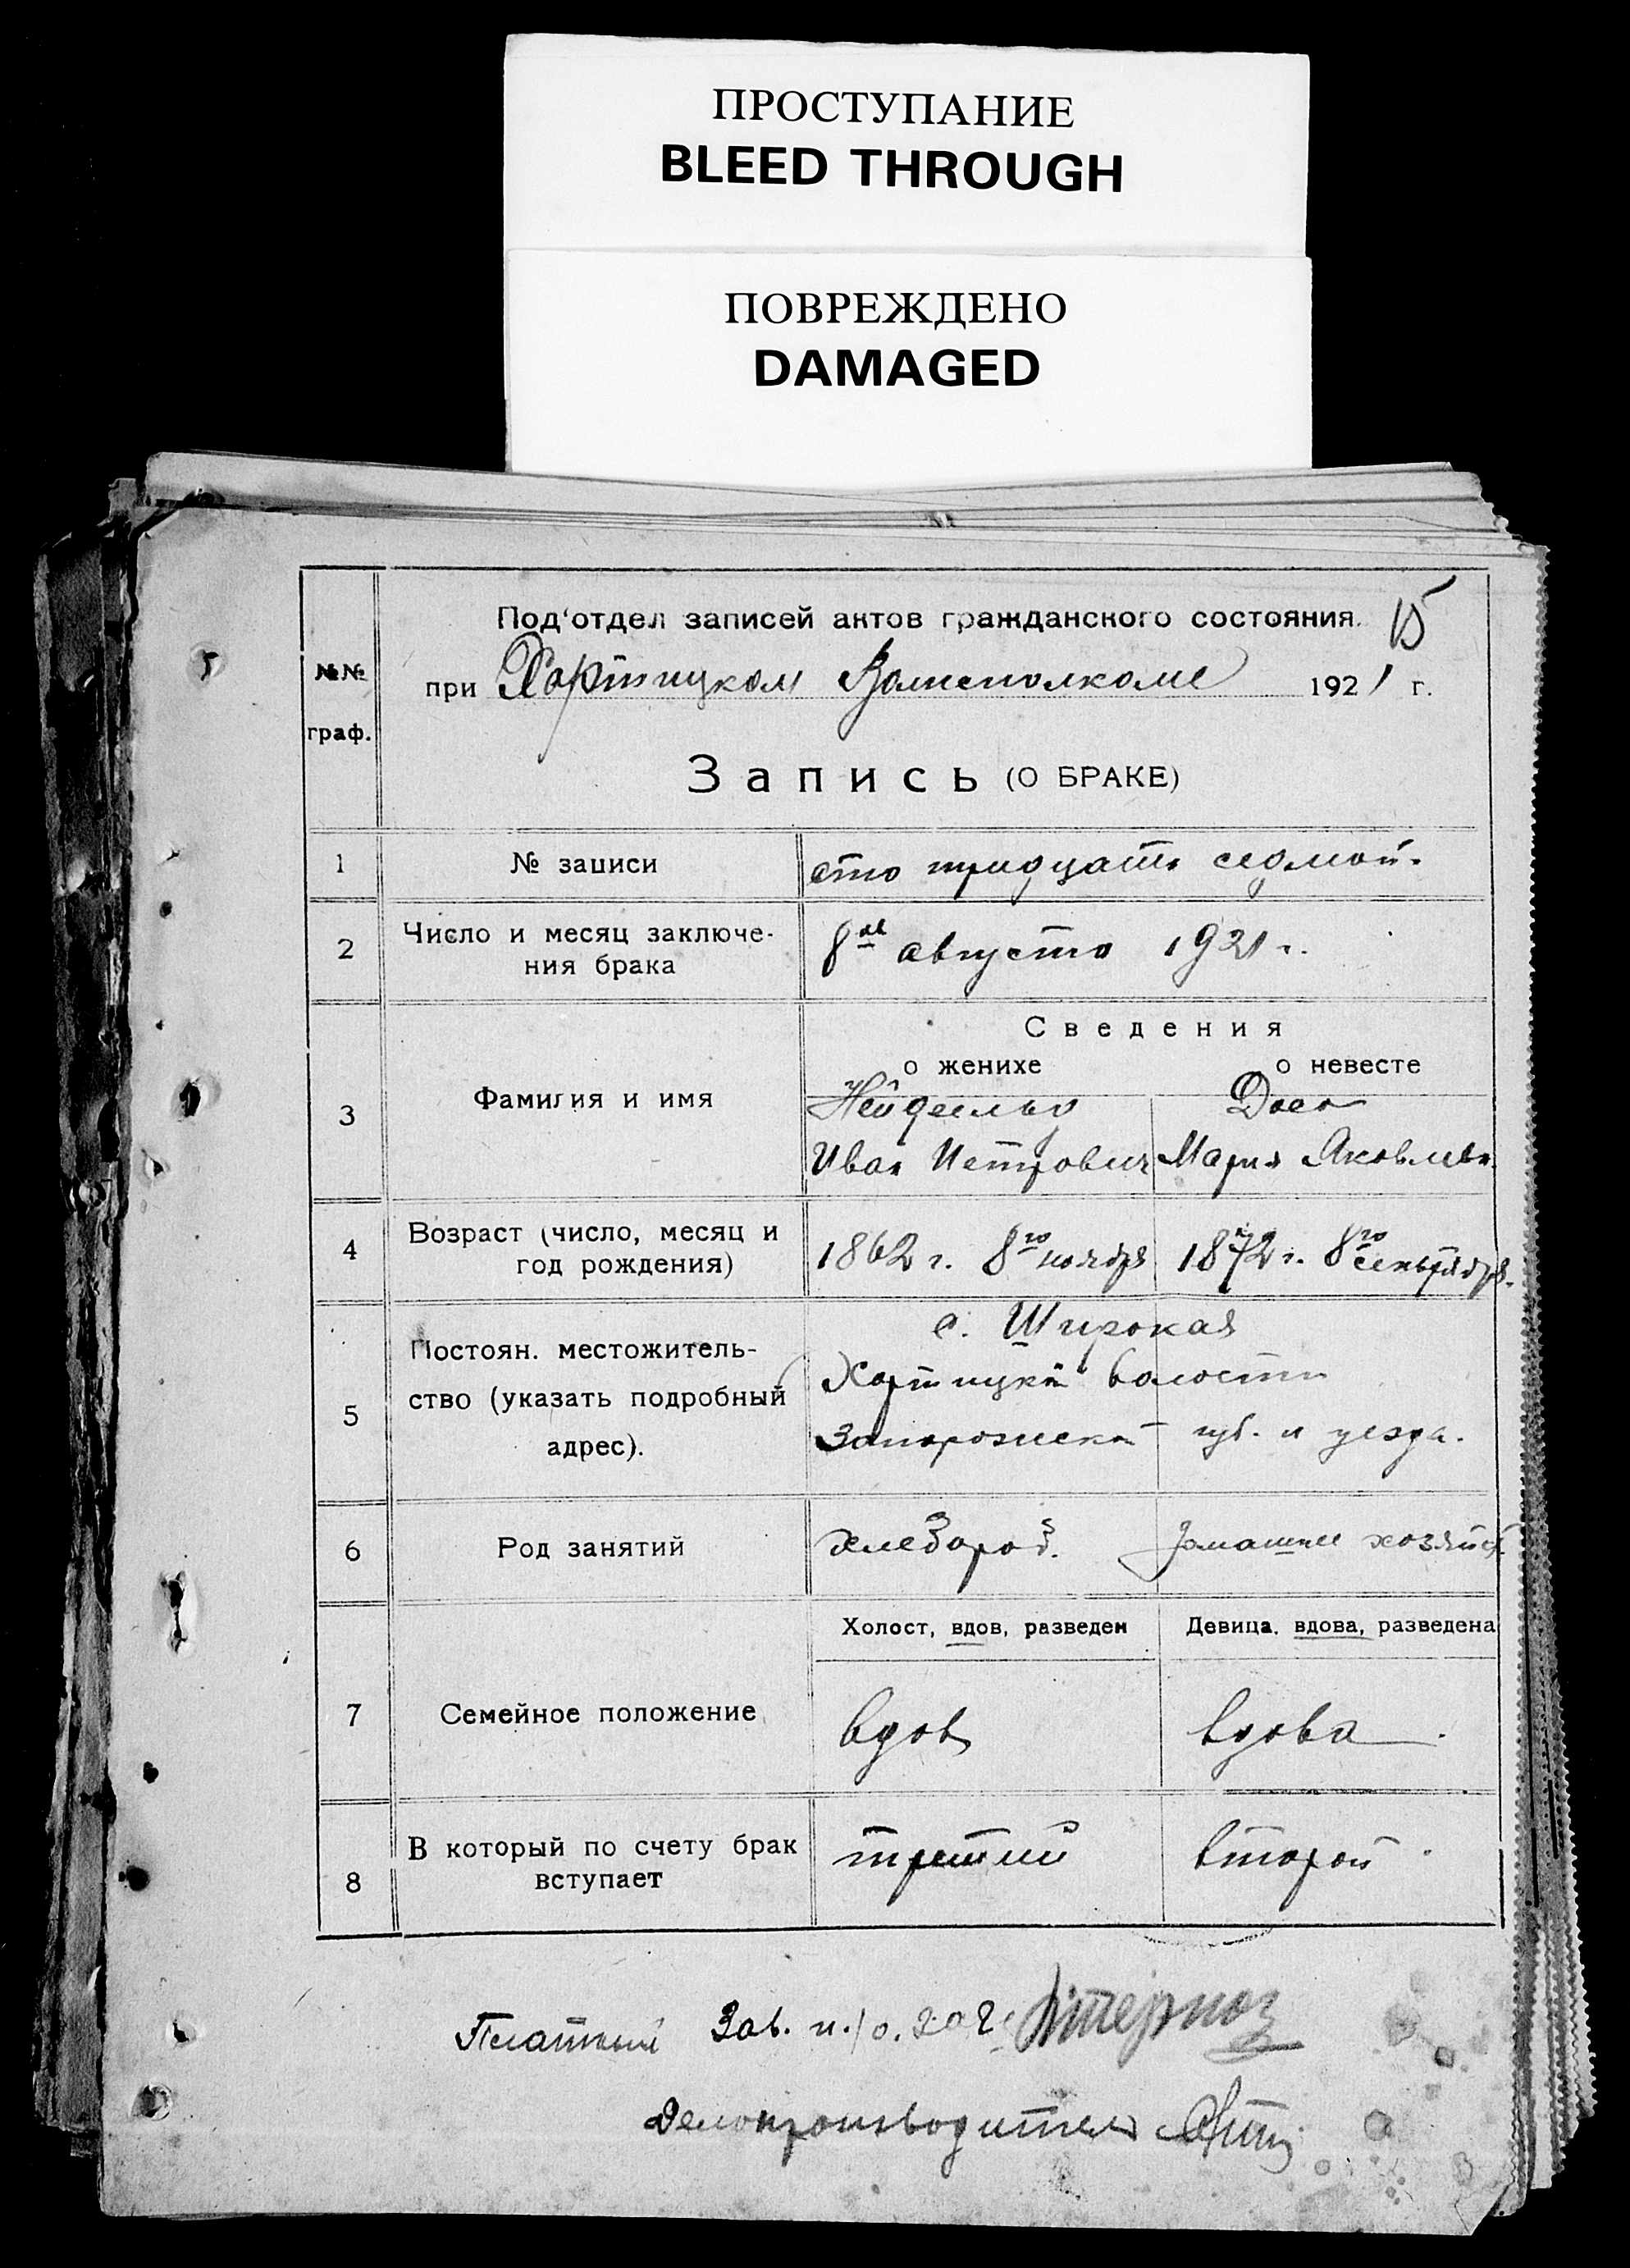 ПРОСТУПАНИЕ
BLEED THROUGH
ПОВРЕЖДЕНО
DAMAGED
15
№№ граф.
Под'отдел записей актов гражданского состояния.
при Хортицком Волисполкоме 1921 г.
Запись (О БРАКЕ)
1 № записи сто тридцать седмой.
2 Число и месяц заключе-
ния брака 8го августа 1921 г.
Сведения
о женихе о невесте
3 Фамилия и имя
Дек
Иван Петрович Мария Яковлевн
4 Возраст (число, месяц и
год рождения) 1862 г. 8го ноября 1872 г. 8го сентября.
с. Широкая
5 Постоян. местожитель-
ство (указать подробный
адрес).
Хортицкой волости
Запорожской губ. и уезда.
6 Род занятий хлебороб. домашнее хозяйст.
Холост, вдов, разведен Девица, вдова, разведена
7 Семейное положение вдов вдова.
8 В который по счету брак
вступает третий второй.
Зав. п./о. загс
Делопроизводитель